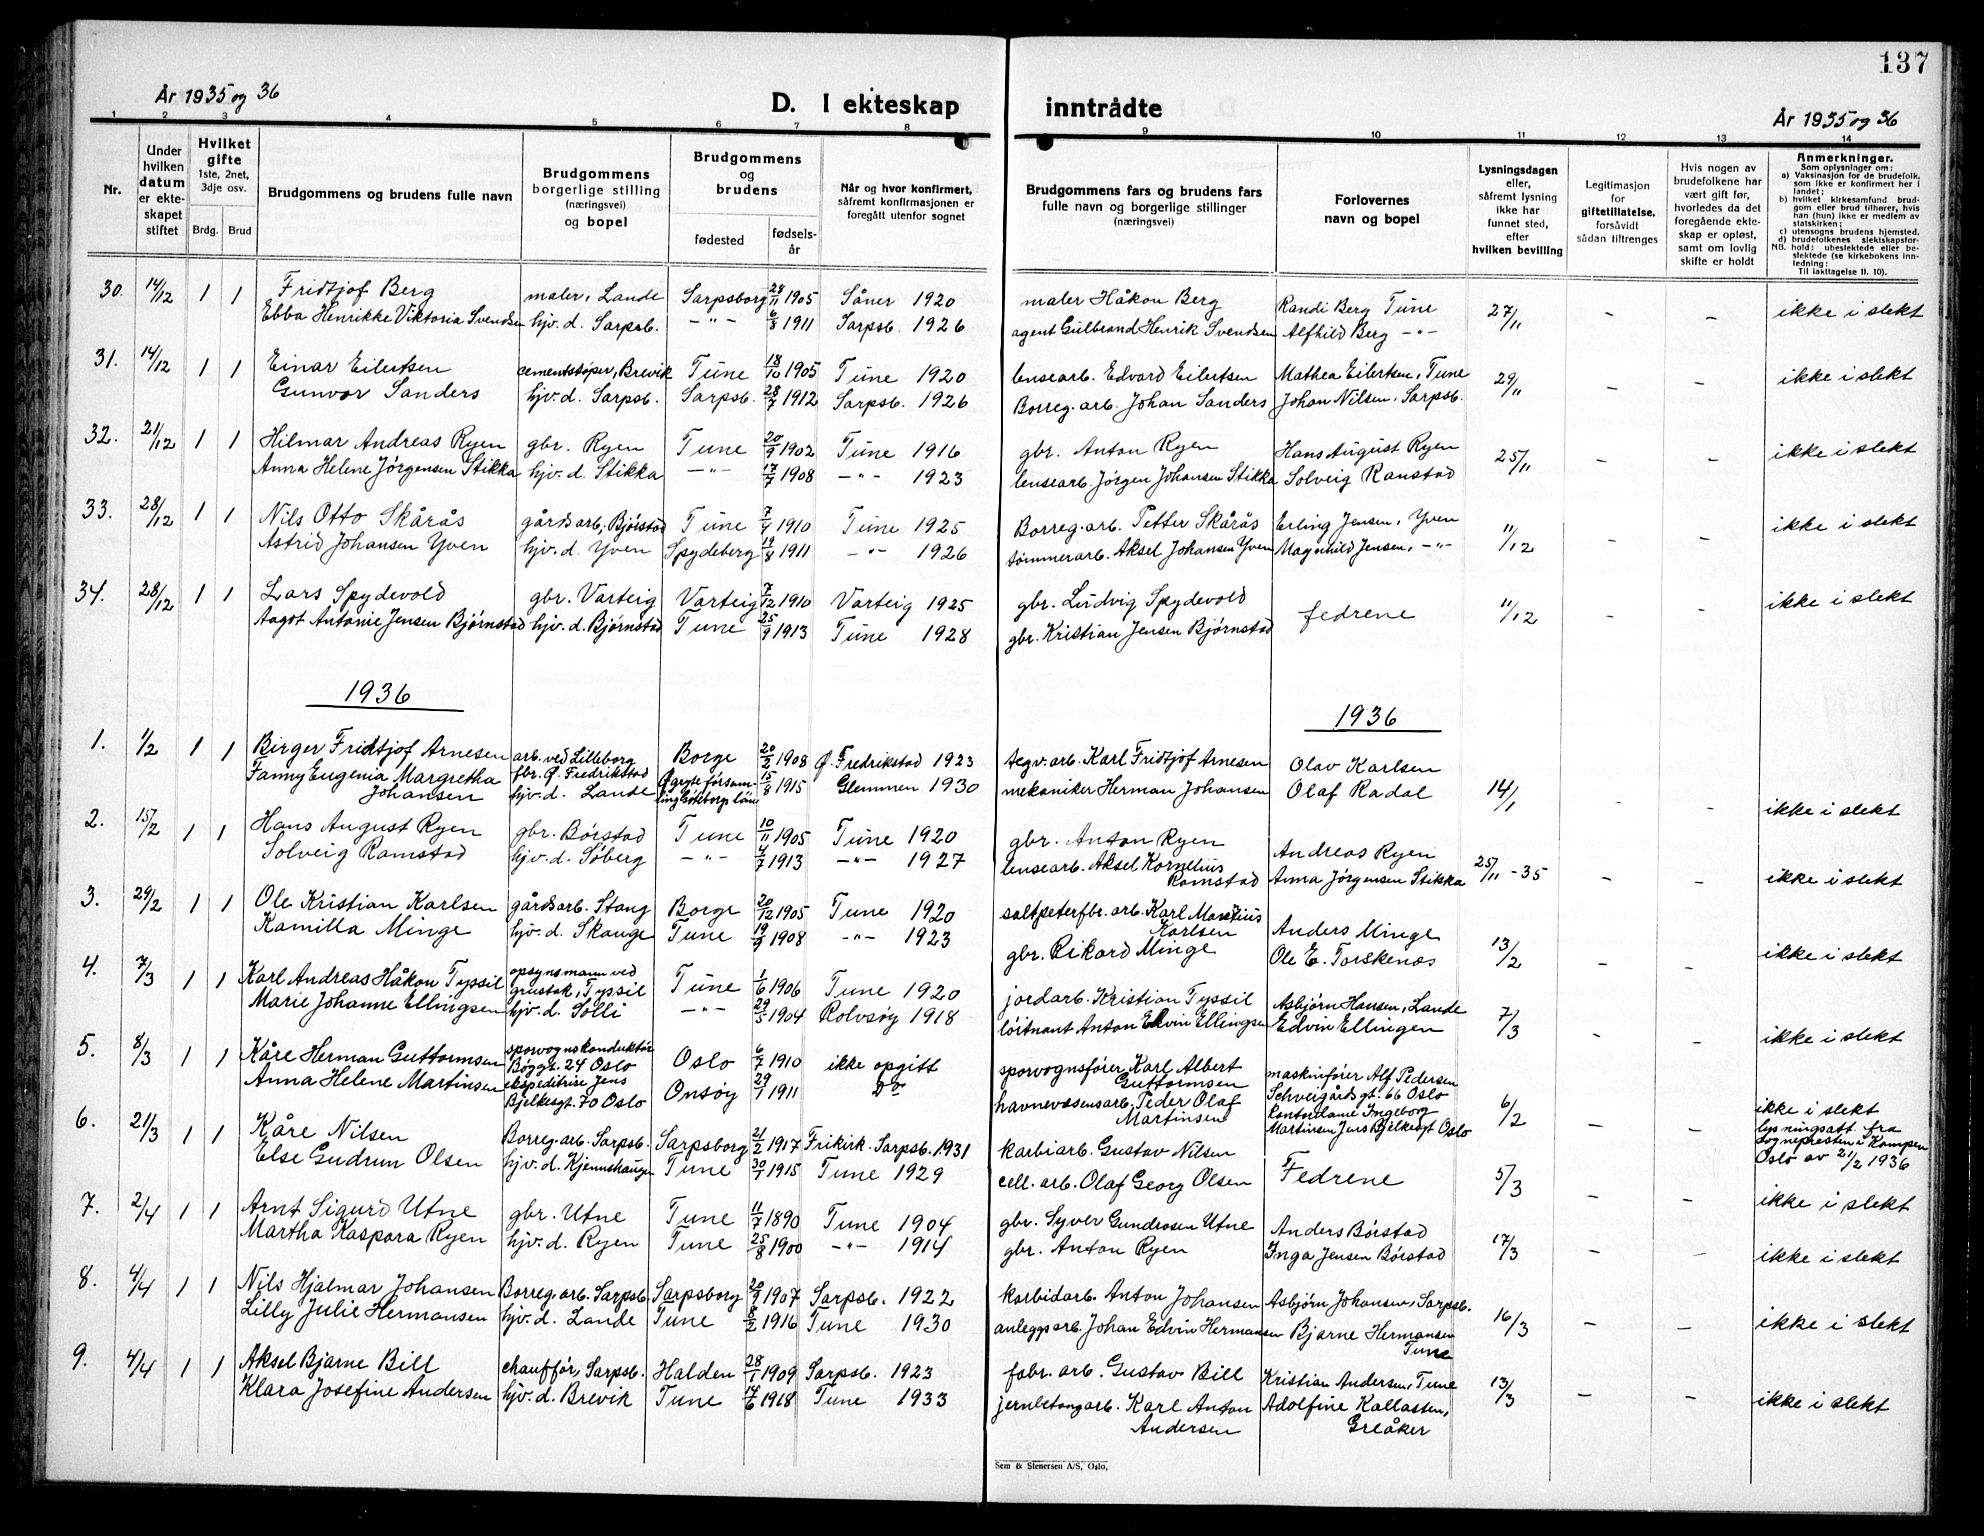 137
År 1935 og 36
D. I ekteskap inntrådte
År 1935 og 36
1 2 3 4 5 6 7 8 9 10 11 12 13 14
Nr.
Under hvilken datum er ekteskapet stiftet
Hvilket gifte 1ste, 2net, 3dje osv.
Brdg. Brud
Brudgommens og brudens fulle navn
Brudgommens borgerlige stilling (næringsvei) og bopel
Brudgommens og brudens
fødested
fødselsår
Når og hvor konfirmert, såfremt konfirmasjonen er foregått utenfor sognet
Brudgommens fars og brudens fars fulle navn og borgerlige stillinger (næringsvei)
Forlovernes navn og bopel
Lysningsdagen eller, såfremt lysning ikke har funnet sted, efter hvilken bevilling
Legitimasjon for giftetillatelse, forsåvidt sådan tiltrenges
Hvis nogen av brudefolkene har vært gift før, hvorledes da det foregående ekteskap er opløst, samt om lovlig skifte er holdt
Anmerkninger.
Som oplysninger om:
a) Vaksinasjon for de brudefolk, som ikke er konfirmert her i landet;
b) hvilket kirkesamfund brudgom eller brud tilhører, hvis han (hun) ikke er medlem av statskirken;
c) utensogns brudens hjemsted.
d) brudefolkenes slektskapsforhold: ubeslektede eller beslektede (se kirkebokens innledning:
NB.
Til iakttagelse II. 10).
30. 14/12 1 1 Fridtjof Berg maler, Lande Sarpsborg 28/11 1905 Såner 1920 maler Håkon Berg Randi Berg Tune 27/11 - - ikke i slekt
Ebba Henrikke Viktoria Svendsen hjv. d. Sarpsb. -"- 6/8 1911 Sarpsb. 1926 agent Gulbrand Henrik Svendsen Alfhild Berg -"-
31. 14/12 1 1 Einar Eilertsen cementstøper, Brevik Tune 18/10 1905 Tune 1920 lensearb. Edvard Eilertsen Mathea Eilertsen, Tune 29/11 - - ikke i slekt
Gunvor Sanders hjv. d. Sarpsb. Sarpsb. 28/7 1912 Sarpsb. 1926 Borreg. arb. Johan Sanders Johan Nilsen, Sarpsb.
32. 21/12 1 1 Hilmar Andreas Ryen gbr. Ryen Tune 20/9 1902 Tune 1916 gbr. Anton Ryen Hans August Ryen 25/11 - - ikke i slekt
Anna Helene Jørgensen Stikka hjv. d. Stikka -"- 17/7 1908 -"- 1923 lensearb. Jørgen Johansen Stikka Solveig Ramstad
33. 28/12 1 1 Nils Otto Skårås gårdsarb, Bjørstad Tune 7/4 1910 Tune 1925 Borreg. arb. Petter Skårås Erling Jensen, Yven 11/12 - - ikke i slekt
Astrid Johansen Yven hjv. d. Yven Spydeberg 19/8 1911 -"- 1926 tømmerarb. Aksel Johansen Yven Magnhild Jensen, -"-
34. 28/12 1 1 Lars Spydevold gbr. Varteig Varteig 7/12 1910 Varteig 1925 gbr. Ludvig Spydevold fedrene 11/12 - - ikke i slekt
Aagot Antonie Jensen Bjørnstad hjv. d. Bjørnstad Tune 25/9 1913 Tune 1928 gbr. Kristian Jensen Bjørnstad
1936 1936
1. 1/2 1 1 Birger Fridtjof Arnesen arb. ved Lilleborg fbr. Ø. Fredrikstad Borge 20/2 1908 Ø. Fredrikstad 1923 tegv. arb. Karl Fridtjof Arnesen Olav Karlsen 14/1 - - ikke i slekt
Fanny Eugenia Margretha Johansen hjv. d. Lande 15/8 1915 Glemmen 1930 mekaniker Herman Johansen Olaf Radal
2. 15/2 1 1 Hans August Ryen gbr. Børstad Tune 10/11 1905 Tune 1920 gbr. Anton Ryen Andreas Ryen 25/11 - 35 - - ikke i slekt
Solveig Ramstad hjv. d. Søberg -"- 4/7 1913 -"- 1927 lensearb. Aksel Kornelius Ramstad Anna Jørgensen Stikka
3. 29/2 1 1 Ole Kristian Karlsen gårdsarb. Stang Borge 20/12 1905 Tune 1920 saltpeterfbr. arb. Karl Martius Karlsen Anders Minge 13/2 - - ikke i slekt
Kamilla Minge hjv. d. Skauge Tune 19/9 1908 -"- 1923 gbr. Rikard Minge Ole E. Torskenæs
4. 7/3 1 1 Karl Andreas Håkon Tyssil opsynsmann ved grustak, Tyssil Tune 1/6 1906 Tune 1920 jordarb. Kristian Tyssil Asbjørn Hansen, Lande 7/3 - - ikke i slekt
Marie Johanne Ellingsen hjv. d. Solli -"- 29/5 1904 Rolvsøy 1918 løitnant Anton Edvin Ellingsen Edvin Ellingen
5. 8/3 1 1 Kåre Herman Guttormsen sporvognskonduktør Bøggt. 24 Oslo Oslo 6/7 1910 ikke opgitt sporvognsfører Karl Albert Guttormsen maskinfører Alf Pedersen Schveigårdsgt. 66 Oslo 6/2 ikke i slekt
Anna Helene Martinsen ekspeditrise Jens Bjelkesgt. 70 Oslo Onsøy 29/1 1911 Do havnevæsensarb. Peder Olaf Martinsen Kontordame Ingeborg Martinsen Jens Bjelkesgt Oslo lysningsatt. fra sognepresten i Kampen Oslo av 21/2 1936
6. 21/3 1 1 Kåre Nilsen Borreg. arb. Sarpsb. Sarpsborg 21/2 1917 Frikirk. Sarpsb. 1931 karbiarb. Gustav Nilsen Fedrene 5/3 - - ikke i slekt
Else Gudrun Olsen hjv. d. Kjennshaugen Tune 30/1 1915 Tune 1929 cell. arb. Olaf Georg Olsen
7. 2/4 1 1 Arnt Sigurd Utne gbr. Utne Tune 11/7 1890 Tune 1904 gbr. Syver Gundersen Utne Anders Børstad 17/3 - - ikke i slekt
Martha Kaspara Ryen hjv. d. Ryen Tune 25/8 1900 -"- 1914 gbr. Anton Ryen Inga Jensen Børstad
8. 4/4 1 1 Nils Hjalmar Johansen Borreg. arb. Sarpsb. Sarpsborg 20/9 1907 Sarpsb. 1922 karbidarb. Anton Johansen Asbjørn Johansen, Sarpsb. 16/3 - - ikke i slekt
Lilly Julie Hermansen hjv. d. Lande Tune 8/2 1916 Tune 1930 anleggsarb. Johan Edvin Hermansen Bjarne Hermansen Tune
9. 4/4 1 1 Aksel Bjarne Bill chauffør, Sarpsb. Halden 28/1 1909 Sarpsb. 1923 fabr. arb. Gustav Bill Kristian Andersen, Tune 13/3 - - ikke i slekt
Klara Josefine Andersen hjv. d. Brevik Tune 14/6 1918 Tune 1933 jernbetongarb. Karl Anton Andersen Adolfine Kallassen, Greåker
Sem & Stenersen A/S, Oslo,